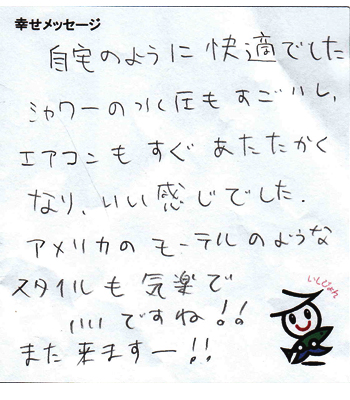 幸せメッセージ
自宅のように快適でした
シャワーの水圧もすごいし、
エアコンもすぐあたたかく
なり、いい感じでした.
アメリカのモーテルのような
スタイルも気楽で
いいですね!!
また来ますー!!